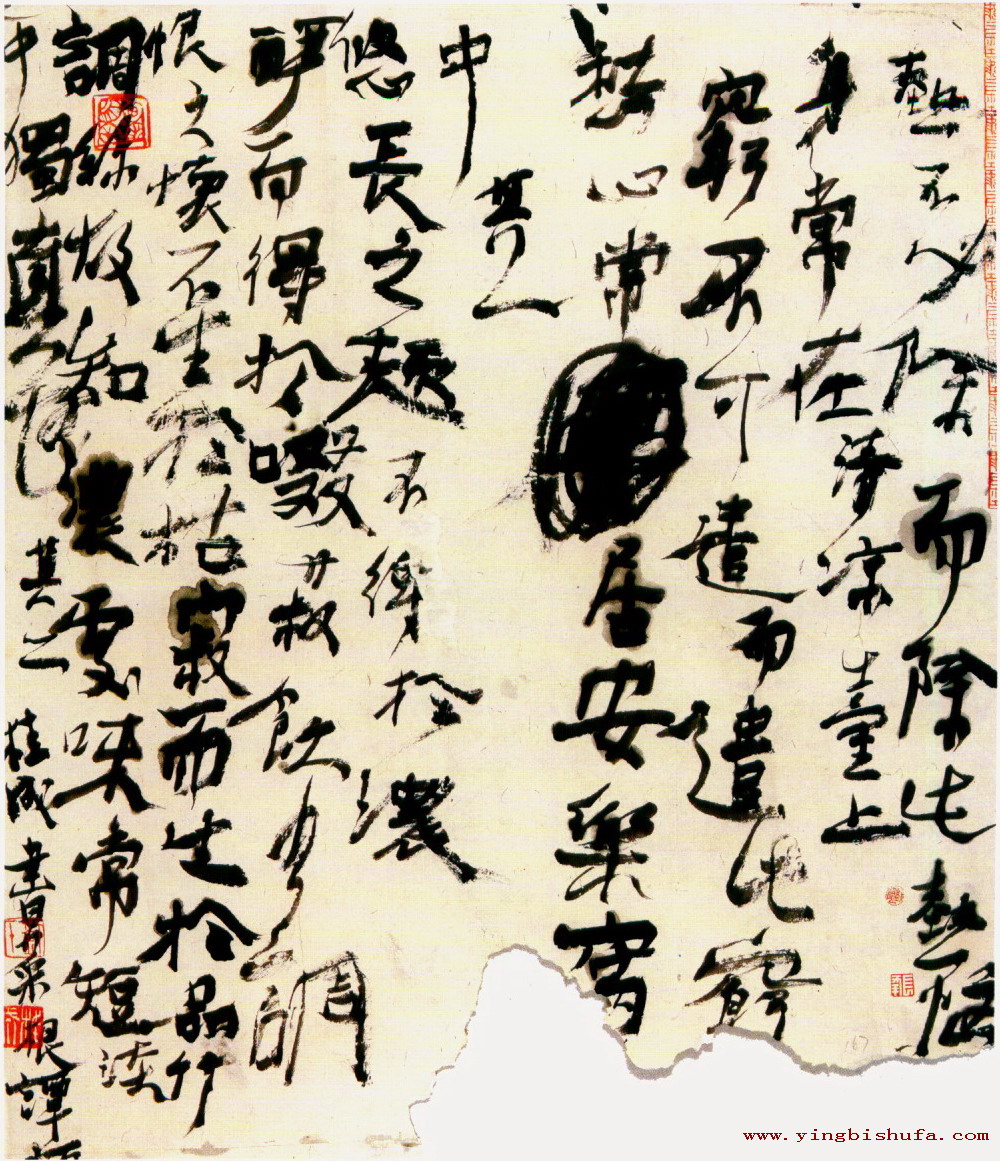 熱不必除而除此熱惱
身常在清凉臺上
窮不可遣而遣此窮
愁心常居安樂窩
中
其一
悠長之趣不得於濃
釅而得於啜菽飲水惆
悵之懷不生於枯寂而生於品竹
調絲故知濃處味常短淡
中獨真 其二 桂成書 菜根譚
www.yingbishufa.com